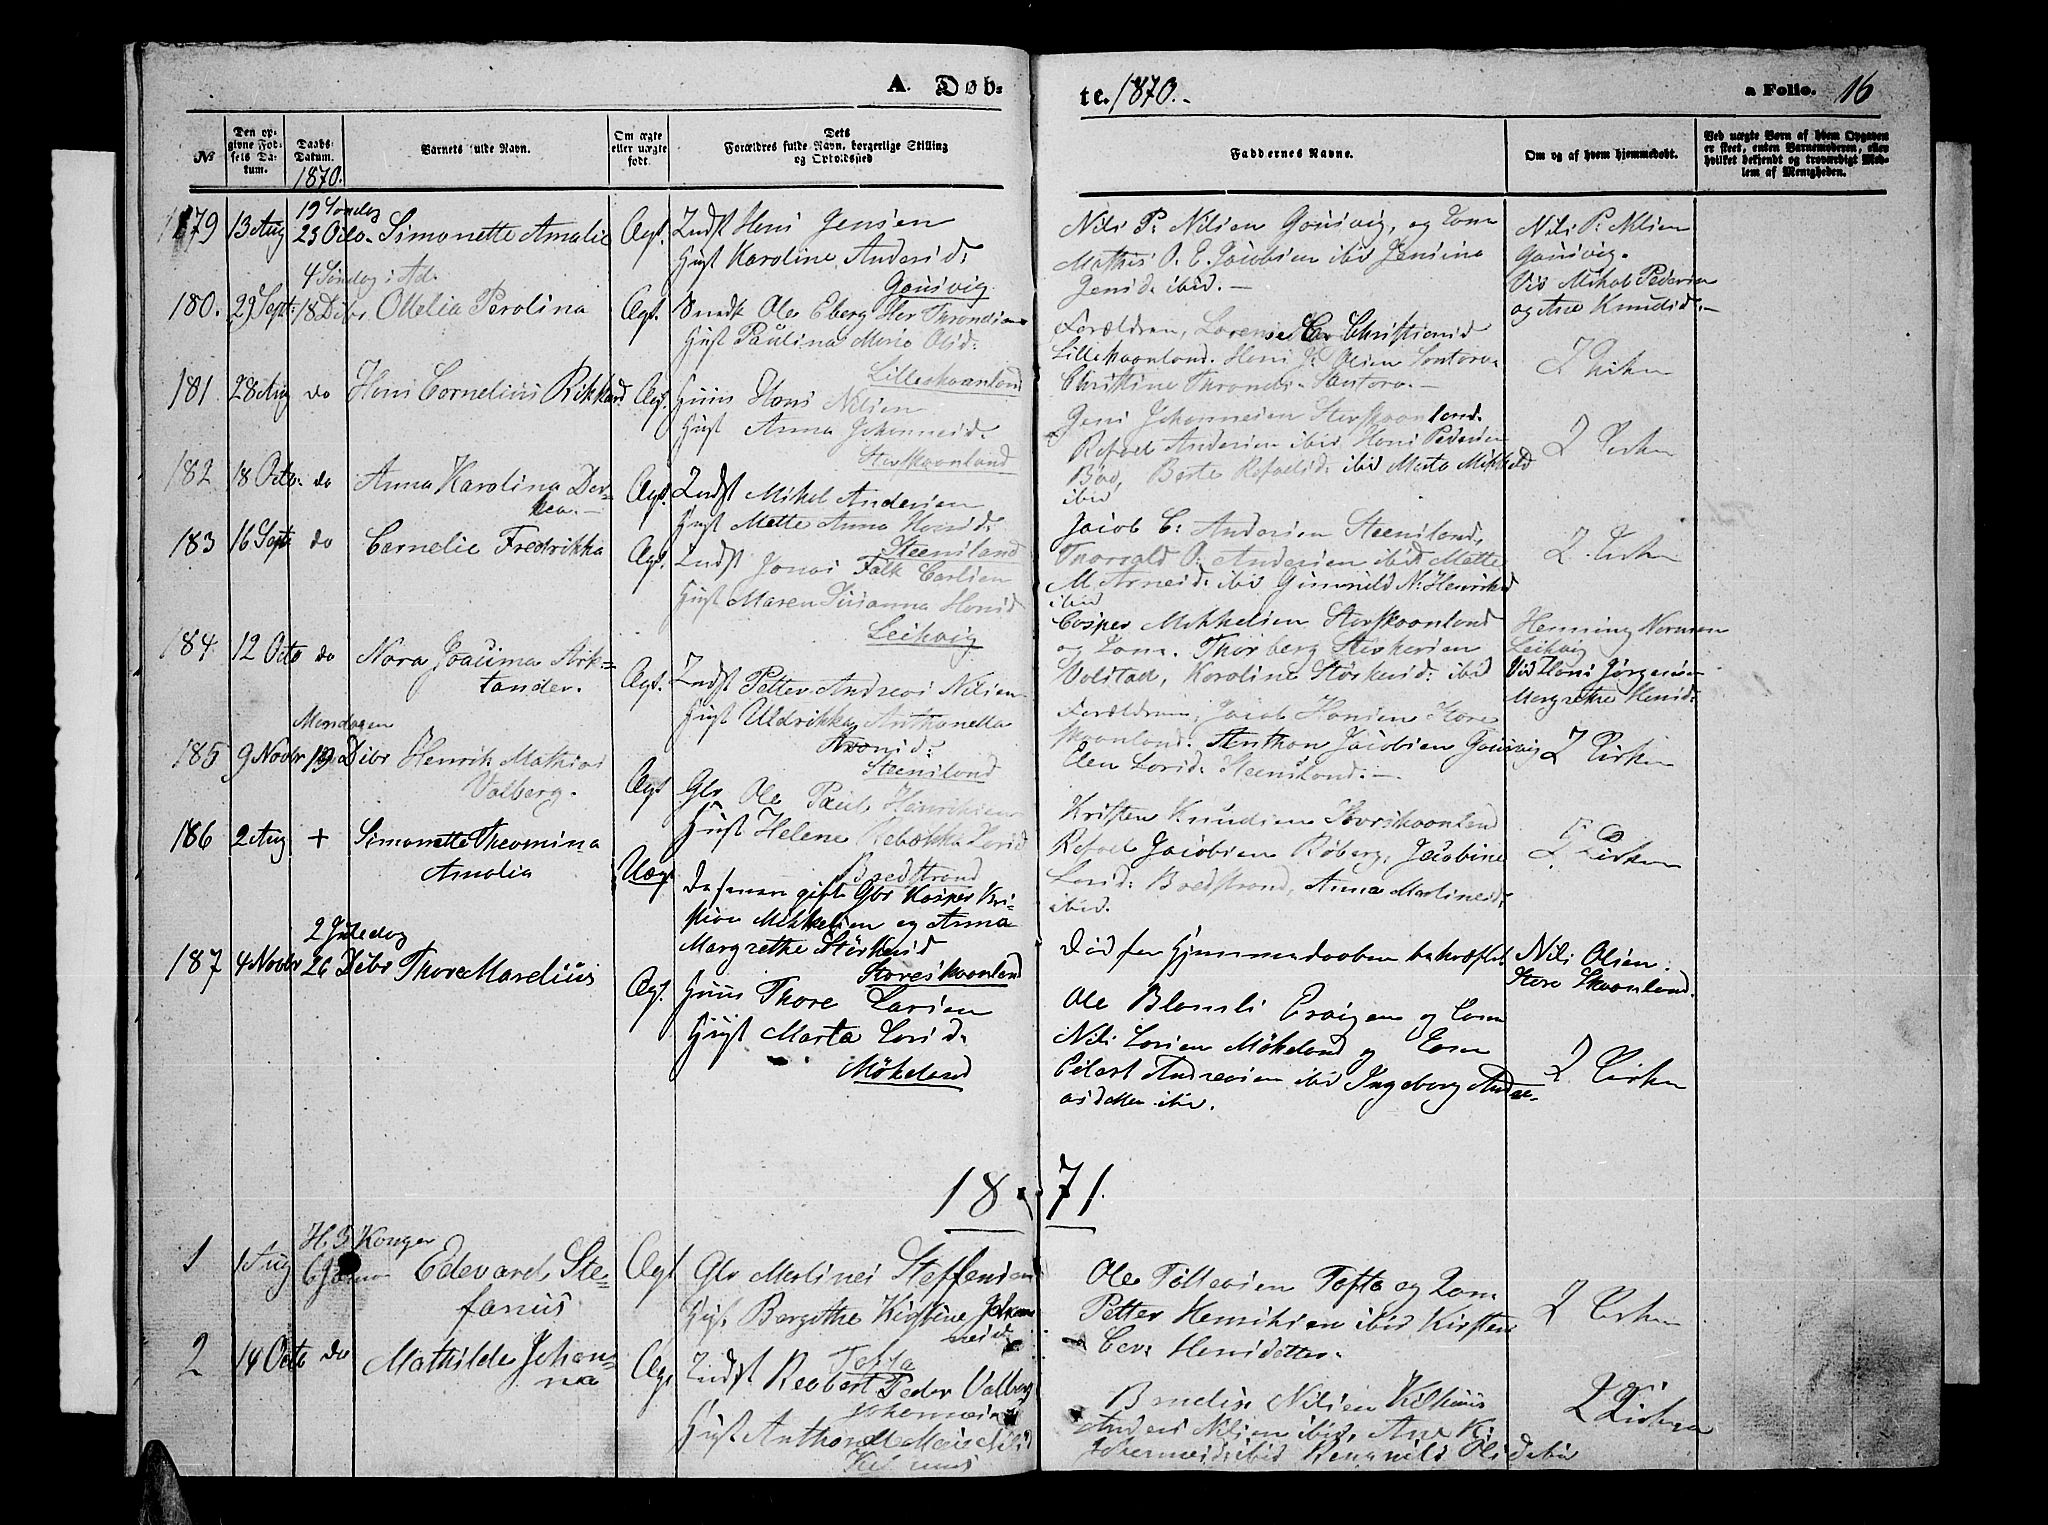 A. Døb-
te. 1870.-
a Folio. 16
№
Den op-
givne Fød-
sels Da-
tum.
Daabs-
Datum.
1870.
Barnets fulde Navn.
Om ægte
eller uægte
født.
Dets
Forældres fulde Navn, borgerlige Stilling
og Opholdssted
Faddernes Navne.
Om og af hvem hjemmedøbt.
Ved uægte Børn af hvem Opgaven
er skeet, enten Barnemoderen, eller
hvilket bekjendt og troværdigt Med-
lem af Menigheden.
179 13 Aug 19 Søndag
23 Octo. Simonette Amalie Ægt. Indst Hans Jensen
Hust Karoline Andersd:
Gausvig
Nils P. Nilsen Gausvig, og Kone
Mathis O. E. Jacobsen ibid Jensina
Jensd. ibid.-
Nils P. Nilsen
Gausvig.
Vid Mikal Pedersen
og Ane Knudsd.-
180. 29 Sept. 4 Søndag i Ad.
18 Decbr Ottelia Perolina Ægt. Ole Eberg Thronsen
Hust Paulina Marie Olsd:
Lilleskaanland
Forældrene, Christiansd
Lilleskaanland. Hans J. Olsen Santorv.
Christine Santorv.-
I Kirken
181. 28 Aug do Hans Cornelius Rikhard. Ægt. Huus Hans Nilsen
Hust Anna Johannesd.
Storskaanland
Jens Johannesen Storskaanland.
Rafael Andersen ibid Hans Pedersen
Bøe, Berte Rafaelsd. ibid Marta Mikkelsd
ibid
I Kirken
182 18 Octo. do Anna Karolina Dor-
thea.- Ægt. Indst Mikal Andersen
Hust Mette Anna Hansd:
Steensland
Jacob C: Andersen Steensland,
Thorvald O. Andersen ibid Mette
M. Arnesd: ibid Gunnild N. Henriksd
ibid
I Kirken
183 16 Sept do Cornelie Fredrikka Ægt. Indst Jonas Falk Carlsen
Hust Maren Susanna Hansd
Leikvig
Casper Mikkelsen Storskaanland
og Kone. Thorberg Størkersen
Volstad, Karoline Størkersd: ibid
Henning Normann
Leikvig
Vid Hans Jørgensen
Margrethe Hansd:
184. 12 Octo do Nora Joakima Ark-
tander. Ægt. Indst Petter Andreas Nilsen
Hust Uldrikka Anthonetta
Aronsd:
Steensland
Forældrene, Jacob Hansen Store
skaanland. Anthon Jacobsen Gausvig
Elen Larsd: Steensland.-
I Kirken
185 9 Novbr Mandagen
19 Decbr Henrik Mathias
Valberg. Ægt Gbr Ole Paul Henriksen
Hust Helene Rebekka Larsd
Bredstrand
Kristen Knudsen Storskaanland
Rafael Jacobsen Røberg, Jacobine
Larsd: Bredstrand, Anna Martinesd.
ibid.
I Kirken
186 2 Aug + Simonette Theomina
Amalia Uægt Gbr Kasper Kri-
stian Mikkelsen og Anna
Margrethe Størkersd
Storeskaanland
Død før Hjemmedaaben bekræftet.
Nils Olsen.
Store Skaanland.
187 4 Novbr 2 Juledag
26 Decbr Thore Marelius Ægt. Huus Thore Larsen
Hust Marta Larsd.
Møkeland
Ole Blomli og Kone
Nils Larsen Møkeland og Kone
Edlert Andreasen ibid Ingeborg Andre-
asdatter ibid.
I Kirken
1871.
1 1 Aug H. 3 Konger
6 Januar Edevard Ste-
fanus Ægt Gbr Martines Steffensen
Hust. Bergithe Kirstine Johan-
nesd
Tofta
Ole Tollevsen Tofte og Kone
Petter Henriksen ibid Kirsten
Hansdatter.
I Kirken
2 14 Octo do Mathilde Johan-
na Ægt Indst Reobert Peder Valberg
Johannesen
Hust Anthonette Marie Nilsd
Kilhuus
Nilsen Kilhuus
Anders Nilsen ibid, Ane K.
Johannesd: ibid Olsd ibid
I Kirken